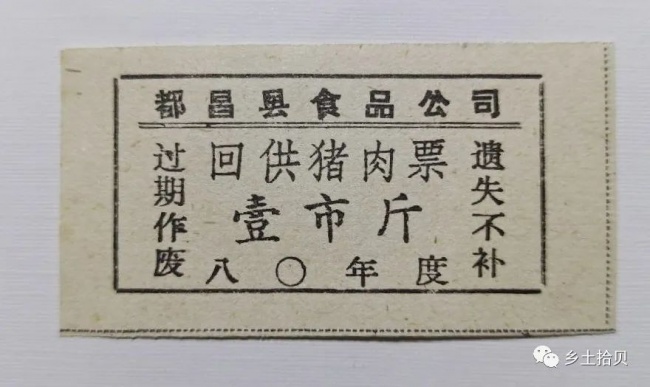 都昌县食品公司
过期作废
回供猪肉票
壹市斤
八〇年度
遗失不补
乡土拾贝